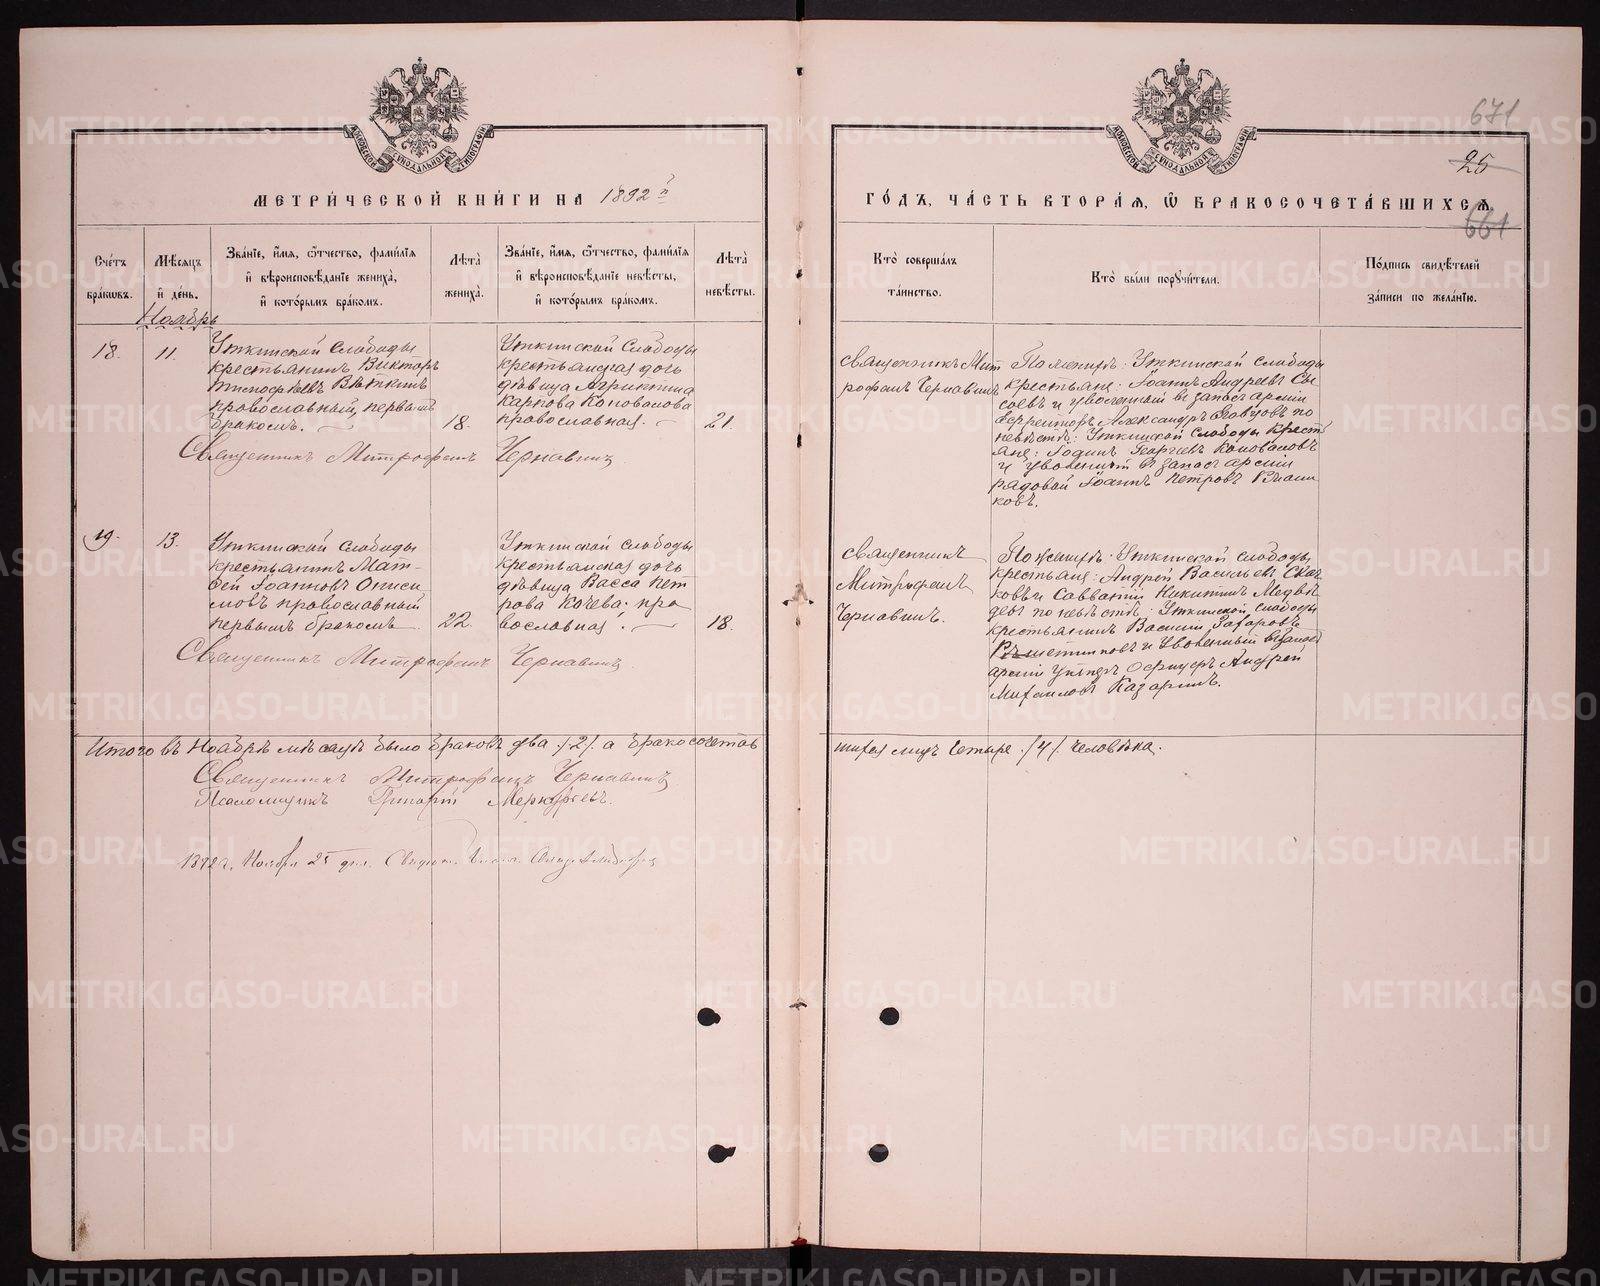 671
25
661
МЕТРИЧЕСКОЙ КНИГИ НА 1892 й
ГОДЪ, ЧАСТЬ ВТОРАЯ, Ѡ БРАКОСОЧЕТАВШИХСЯ.
Счетъ браковъ.
Мѣсяцъ и день.
Званіе, имя, отчество, фамилія
и вѣроисповѣданіе жениха,
и которымъ бракомъ.
Лѣта жениха.
Званіе, имя, отчество, фамилія
и вѣроисповѣданіе невѣсты,
и которымъ бракомъ.
Лѣта невѣсты.
Кто совершалъ
таинство.
Кто были поручители.
Подпись свидѣтелей
записи по желанію.
Ноябрь
18.
11.
Уткинской Слободы
крестьянинъ Викторъ
Тимофеевъ Вяткинъ
православный, первымъ
бракомъ.
18.
Уткинской Слободы
крестьянская дочь
дѣвица Агриппина
Карпова Коновалова
православная.
21.
Священникъ Мит
рофанъ Чернавинъ
По женихѣ: Уткинской Слободы
крестьяне: Іоаннъ Андреевъ Сы
соевъ и уволенный въ запасъ арміи
Ефрейторъ Александръ
невѣстѣ: Уткинской Слободы крестъ
яне: Георгіевъ Коноваловъ
и уволенный въ запасъ арміи
рядовой Іоаннъ Петровъ
ковъ.
Священникъ Митрофанъ Чернавинъ
19.
13.
Уткинской Слободы
крестьянинъ Мат-
ѳей Іоанновъ Ониси
мовъ православный
первымъ бракомъ
22.
Уткинской слободы
крестьянская дочь
дѣвица Васса Пет
рова Кочева. пра
вославная.
18.
Священникъ
Митрофанъ
Чернавинъ.
По женихѣ: Уткинской слободы
крестьяне: Андрей Васильевъ
ковъ и Савватій Никитинъ Медвѣ
девъ по невѣстѣ: Уткинской слободы
крестьянинъ Василій Захаровъ
и Уволенный въ запасъ
арміи Унтеръ Офицеръ Андрей
Михаиловъ Казаринъ.
Священникъ Митрофанъ Чернавинъ
Итого въ Ноябрѣ мѣсяцѣ было браковъ два /2/. а бракосочетав
шихся лицъ четыре /4/ человѣка.
Священникъ Митрофанъ Чернавинъ
Псаломщикъ Григорій Меркурьевъ.
1892 г. Ноября 25 дня.
METRIKI.GASO-URAL.RU